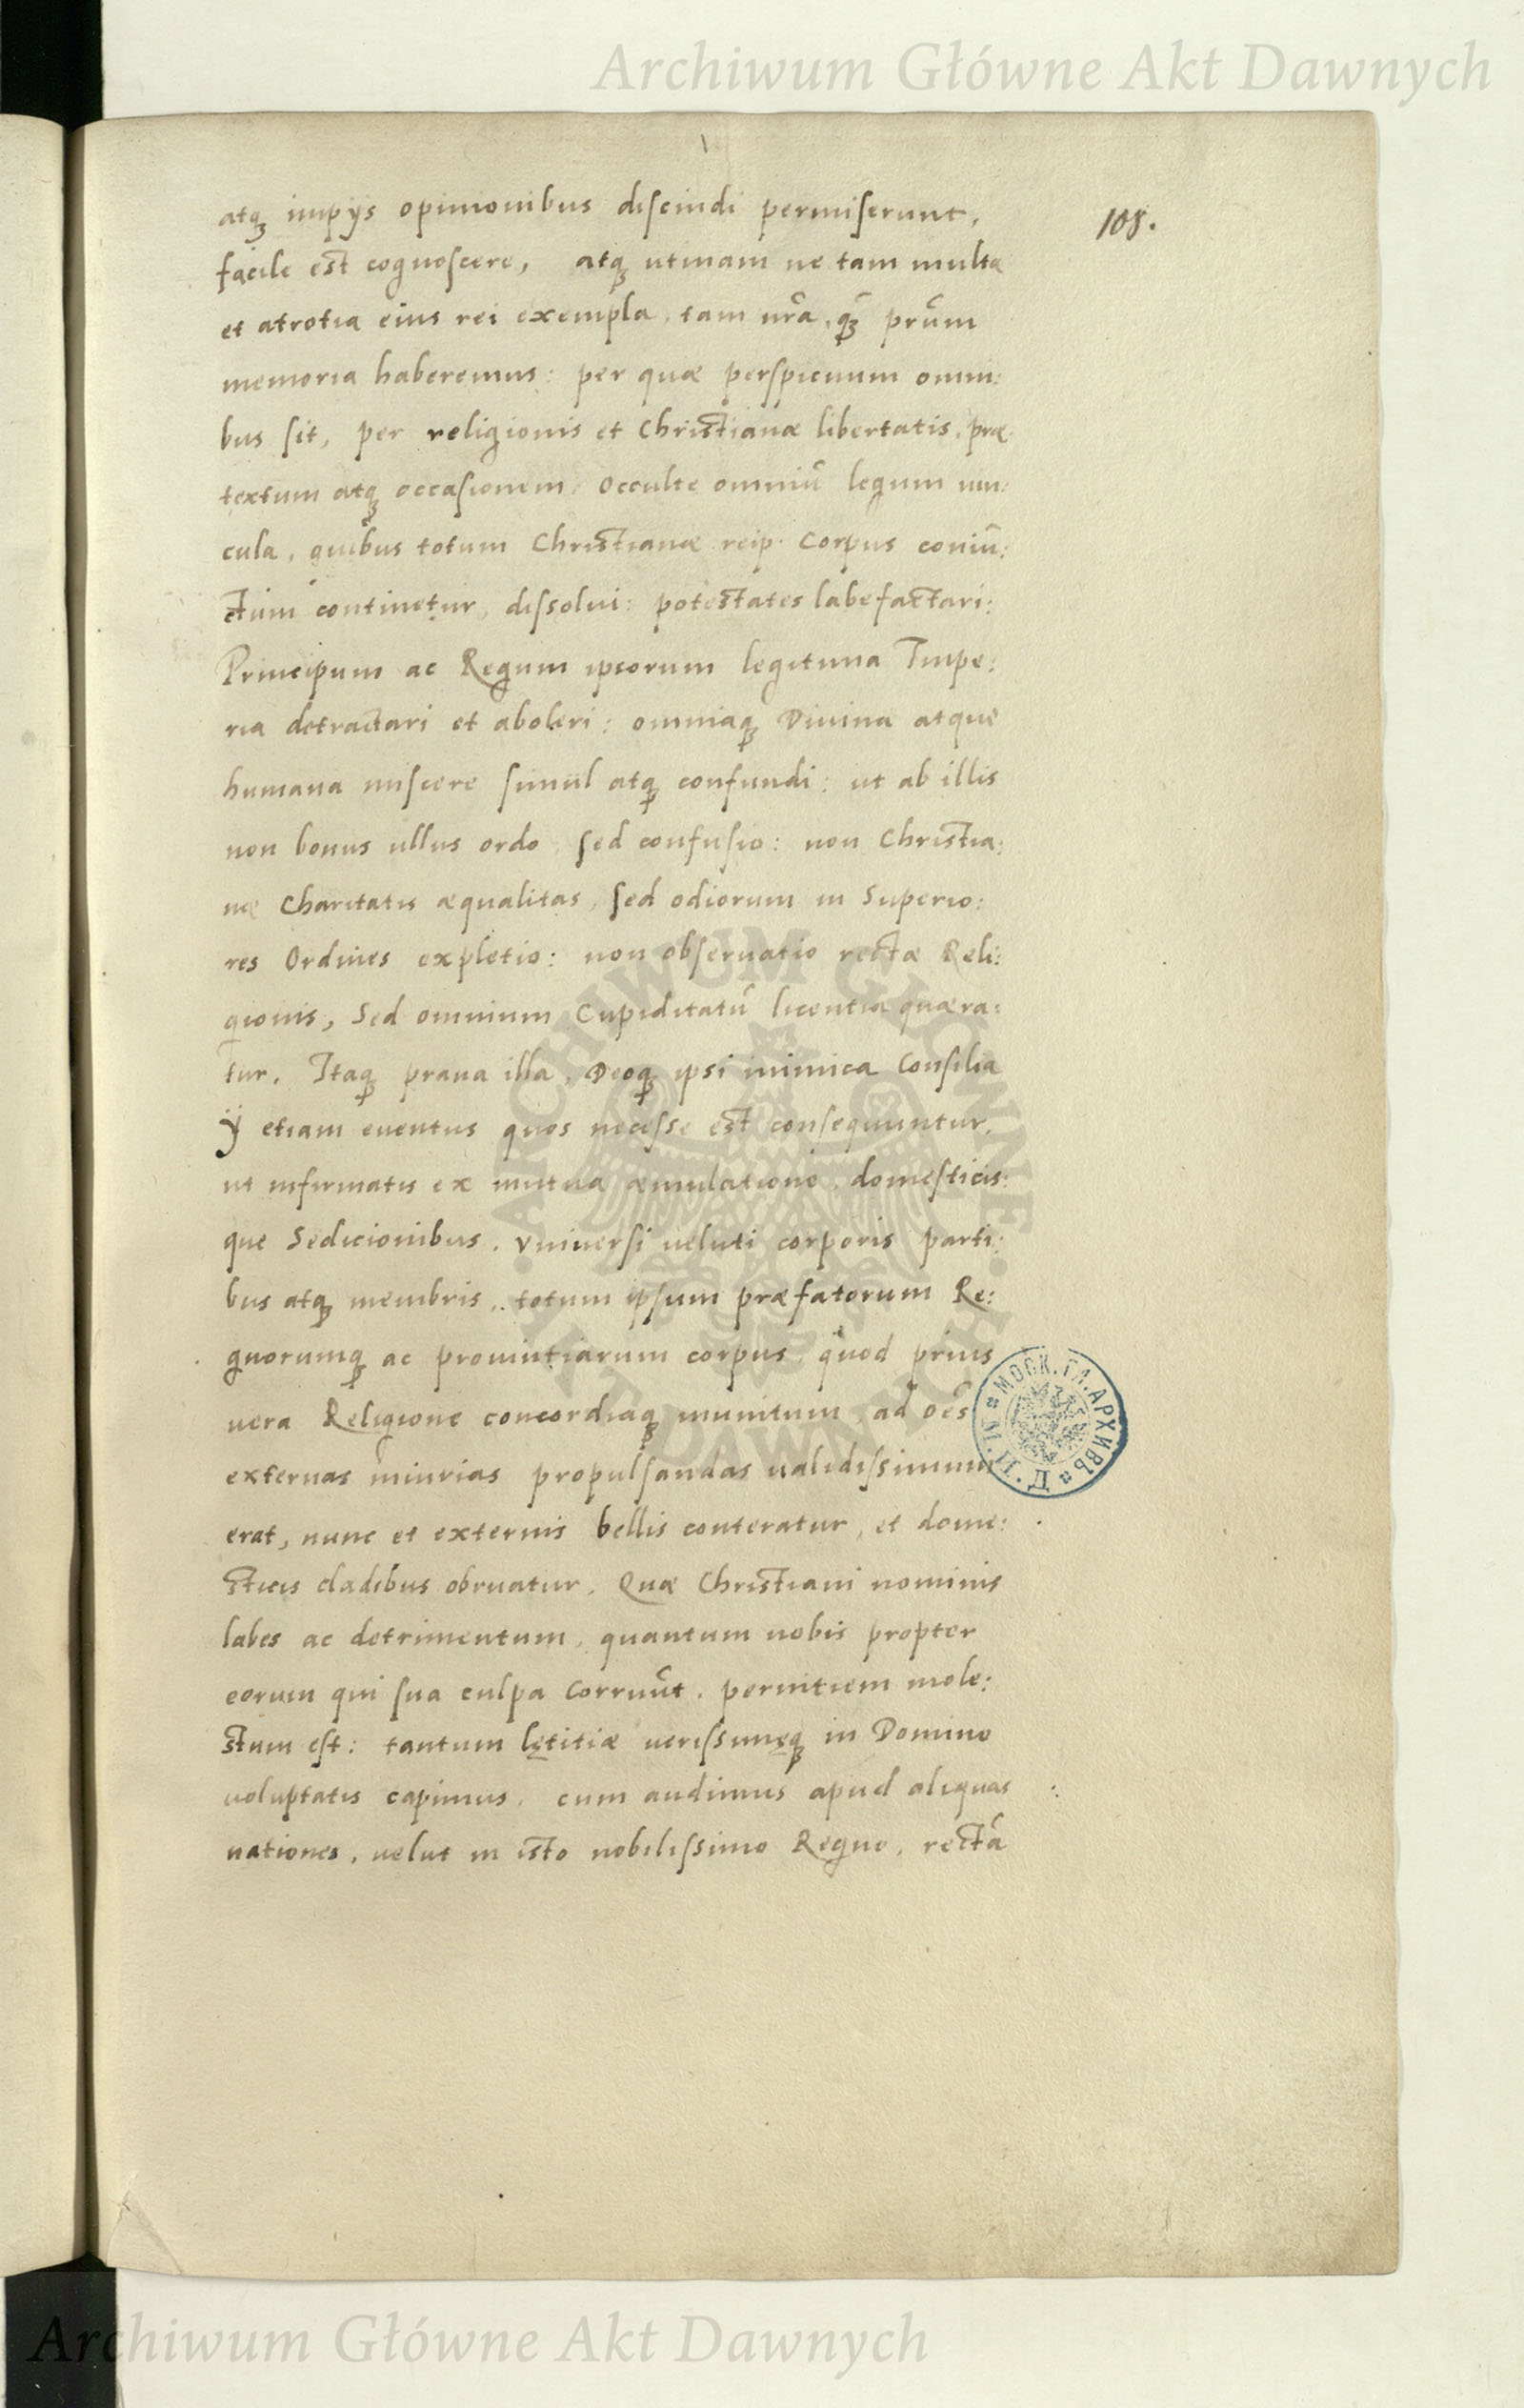 Archiwum Główne Akt Dawnych
108.
atqꝫ impijs opinionibus discindi permiserunt,
facile est cognoscere, atqꝫ utinam ne tam multa
et atrotia eius rei exempla, tam nr̃a, qꝫ̃ pr̃um
memoria haberemus: per quæ perspicuum omni:
bus sit, per religionis et Christianæ libertatis, præ
textum atqꝫ occasionem, occulte omniũ legum uin:
cula, quibus totum Christianæ reip. Corpus coniũ:
ctum continetur, dissolui: potestates labefactari:
Principum ac Regum ipsorum legitima Impe:
ria detractari et aboleri: omniaqꝫ Diuina atque
humana miscere simul atqꝫ confundi: ut ab illis
non bonus ullus ordo, sed confusio: non Christia:
næ Charitatis æqualitas, sed odiorum in Superio:
res Ordines expletio: non obseruatio rectæ Reli:
gionis, Sed omnium Cupiditatũ licentia quæra:
tur. Itaqꝫ praua illa, Deoqꝫ ipsi inimica Consilia
ÿ etiam euentus quos necesse est consequuntur,
ut infirmatis ex mutua æmulatione, domesticis:
que Sedicionibus, vniuersi ueluti corporis parti:
bus atqꝫ membris, totum ipsum præfatorum Re:
gnorumqꝫ ac prouintiarum corpus, quod prius
uera Religione concordiaqꝫ munitum, ad oẽs
externas iniurias propulsandas ualidissimum
erat, nunc et externis bellis conteratur, et dome:
sticis cladibus obruatur. Quæ Christiani nominis
labes ac detrimentum, quantum nobis propter
eorum qui sua culpa Corruũt, pernitiem mole:
stum est: tantum lętitiæ uerissimęqꝫ in Domino
uoluptatis capimus, cum audimus apud aliquas
nationes, uelut in isto nobilissimo Regno, rectã
МОСК. ГЛ. АРХИВЪ М. И. Д.
ARCHIWUM GŁÓWNE AKT DAWNYCH
Archiwum Główne Akt Dawnych